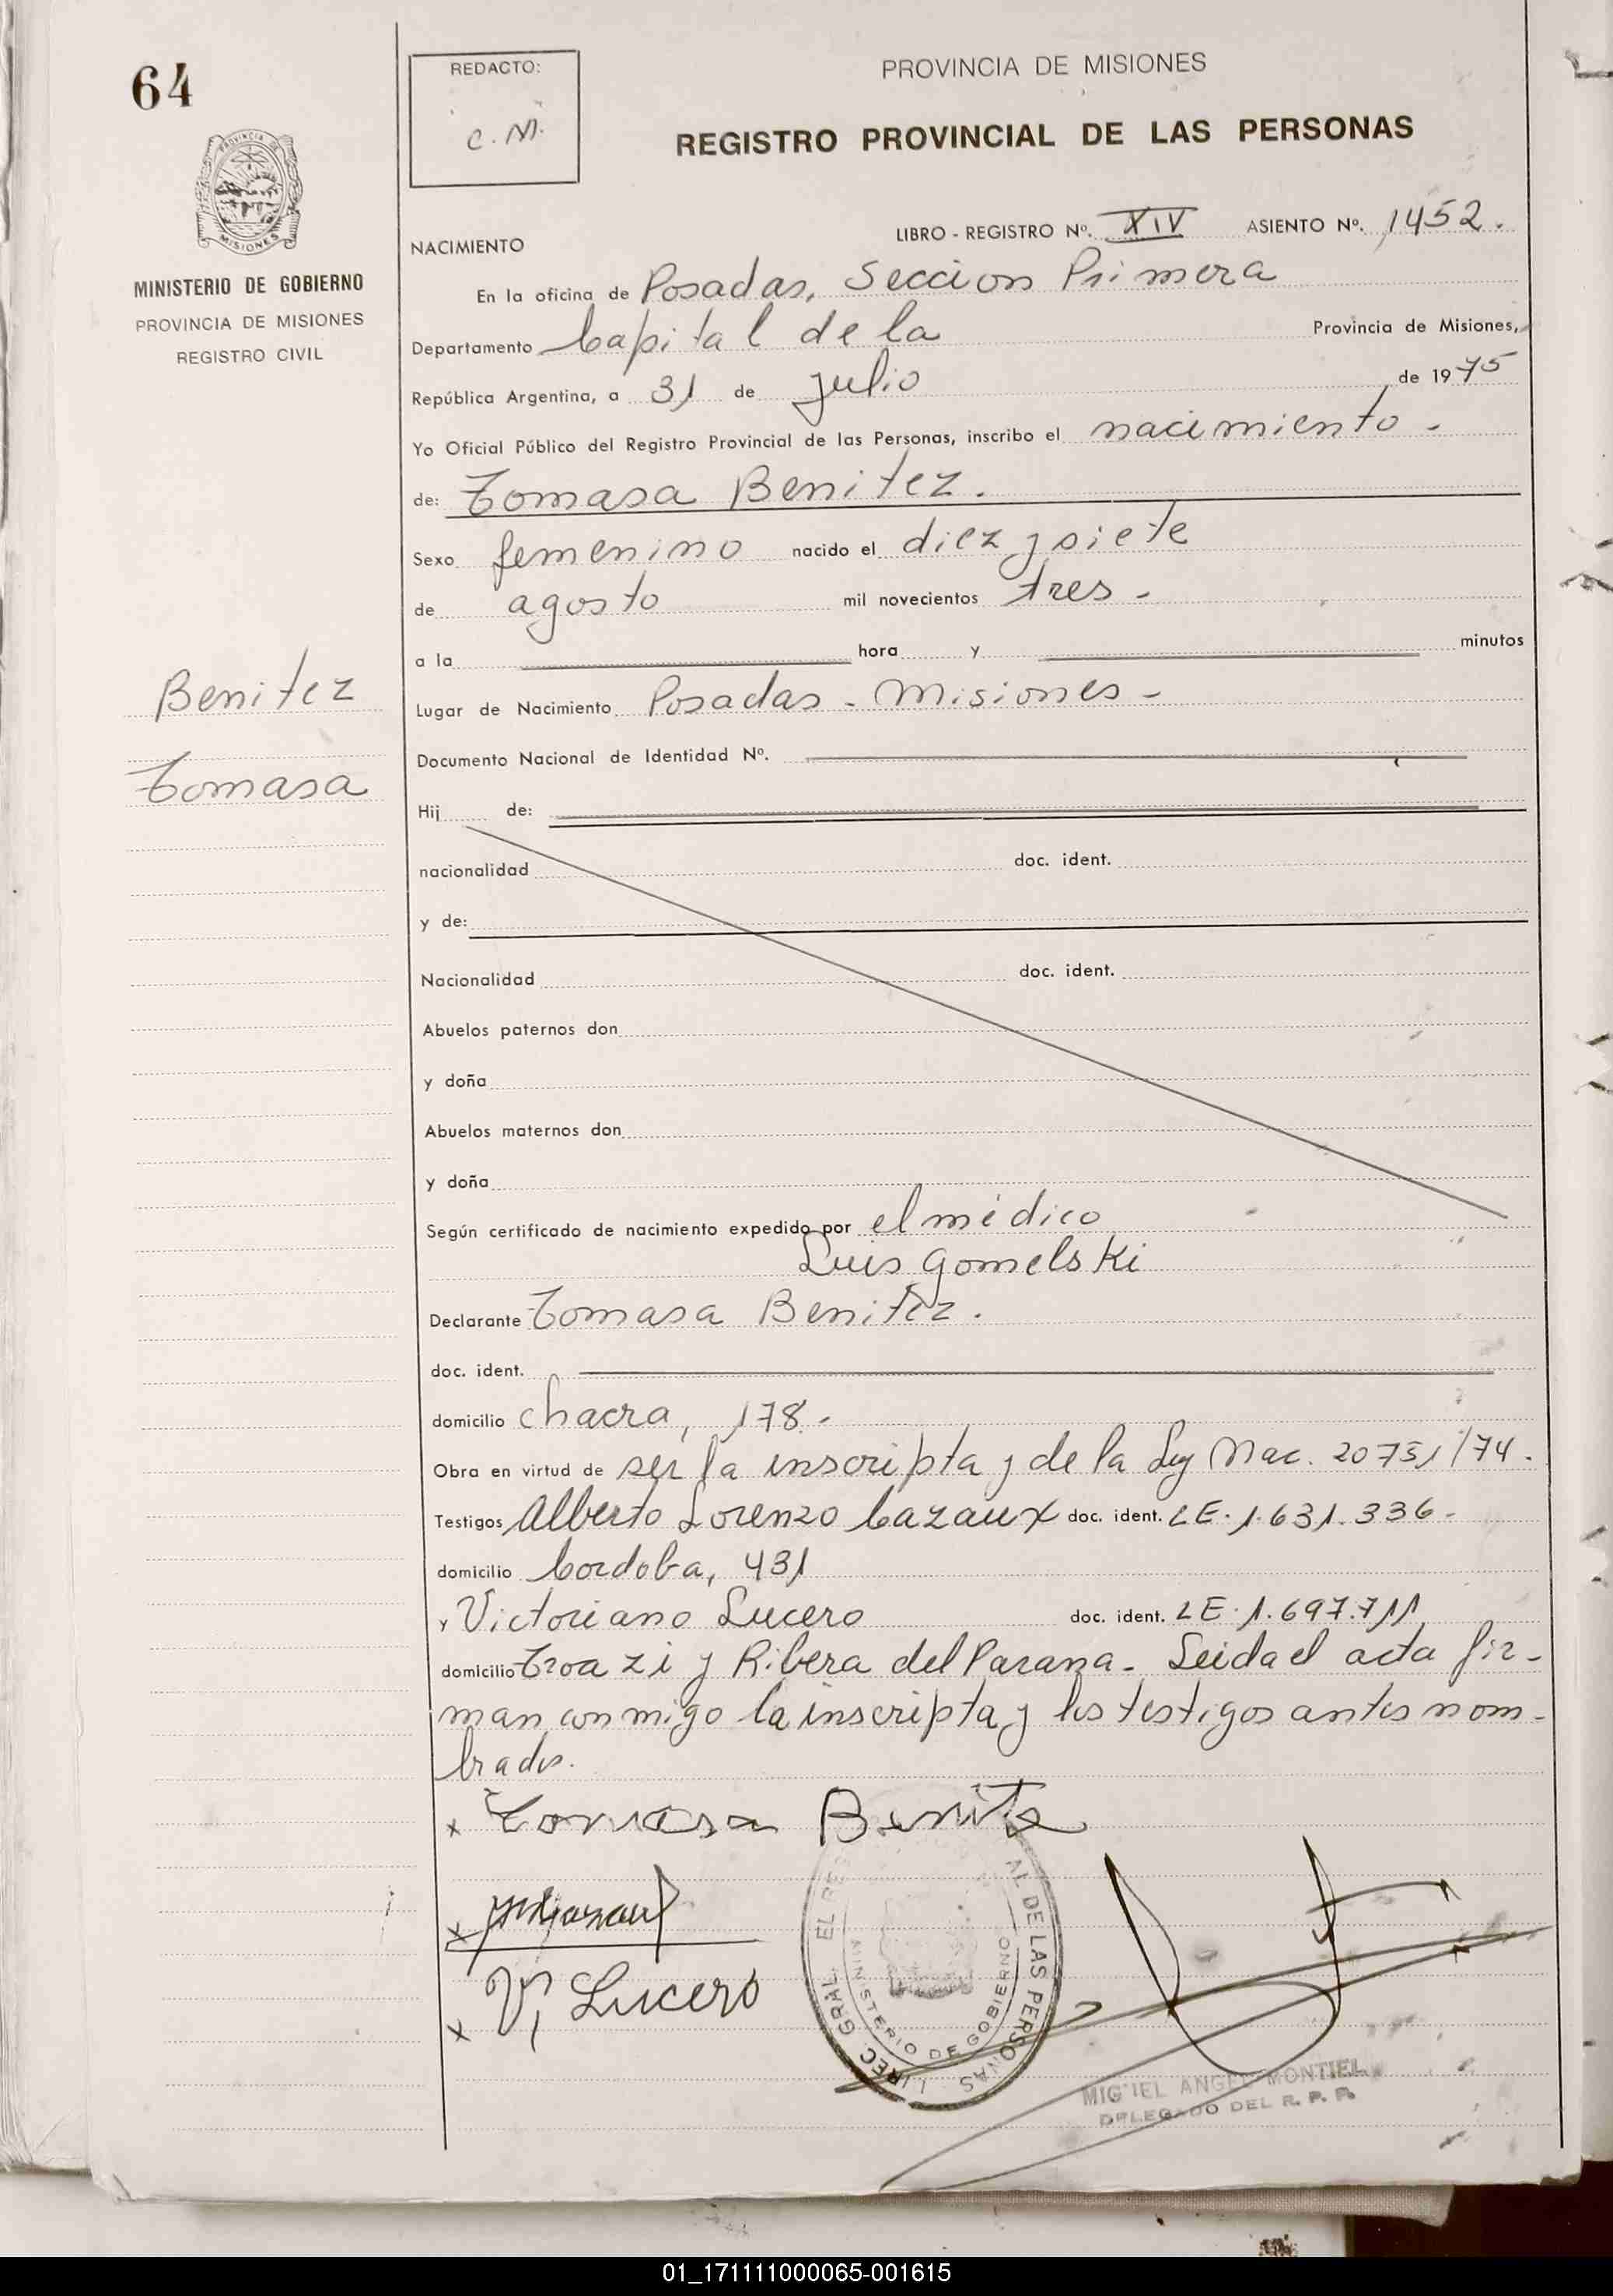 64
REDACTO:
C. M.
PROVINCIA DE MISIONES
REGISTRO PROVINCIAL DE LAS PERSONAS
PROVINCIA DE MISIONES
MINISTERIO DE GOBIERNO
PROVINCIA DE MISIONES
REGISTRO CIVIL
LIBRO - REGISTRO Nº. XIV ASIENTO Nº. 1452.
NACIMIENTO
En la oficina de Posadas, Seccion Primera
Departamento Capital de la Provincia de Misiones,
República Argentina, a 31 de julio de 1975
Yo Oficial Público del Registro Provincial de las Personas, inscribo el nacimiento -
de: Tomasa Benitez.
Sexo femenino nacido el diez y siete
de agosto mil novecientos tres -
a la hora y minutos
Benitez
Tomasa
Lugar de Nacimiento Posadas - Misiones -
Documento Nacional de Identidad Nº.
Hij de:
nacionalidad doc. ident.
y de:
Nacionalidad doc. ident.
Abuelos paternos don
y doña
Abuelos maternos don
y doña
Según certificado de nacimiento expedido por el médico
Luis Gomelski
Declarante Tomasa Benitez.
doc. ident.
domicilio chacra, 178.-
Obra en virtud de ser la inscripta y de la Ley Nac. 20751/74.
Testigos Alberto Lorenzo Cazaux doc. ident. LE. 1.631.336-
domicilio Cordoba, 431
y Victoriano Lucero doc. ident. LE. 1.697.711
domicilio y Ribera del Parana - Leida el acta fir-
man conmigo la inscripta y los testigos antes nom-
brados.
x Tomasa Benitez
x
x V. Lucero
DIREC GRAL. EL REG AL DE LAS PERSONAS
MINISTERIO DE GOBIERNO
MIGUEL ANGEL MONTIEL
DELEGADO DEL R. P. P.
01_171111000065-001615